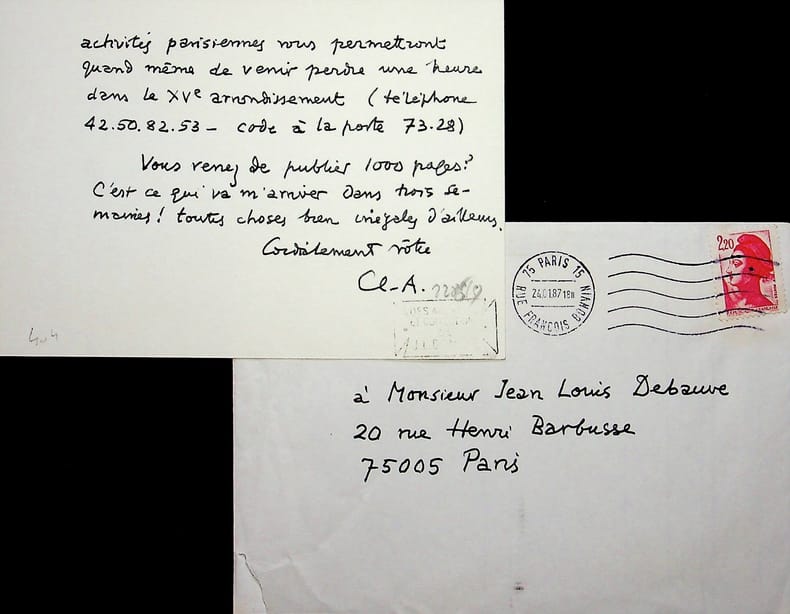 activités parisiennes vous permettront
quand même de venir perdre une heure
dans le XVe arrondissement (téléphone
42.50.82.53 - code à la porte 73.28)
Vous venez de publier 1000 pages?
C'est ce qui va m'arriver dans trois se-
maines! toutes choses bien inégales d'ailleurs.
Cordialement vôtre
Cl-A.
404
75 PARIS 15
24.01.87 18H
RUE FRANCOIS BONVIN
2,20
à Monsieur Jean Louis Debauve
20 rue Henri Barbusse
75005 Paris